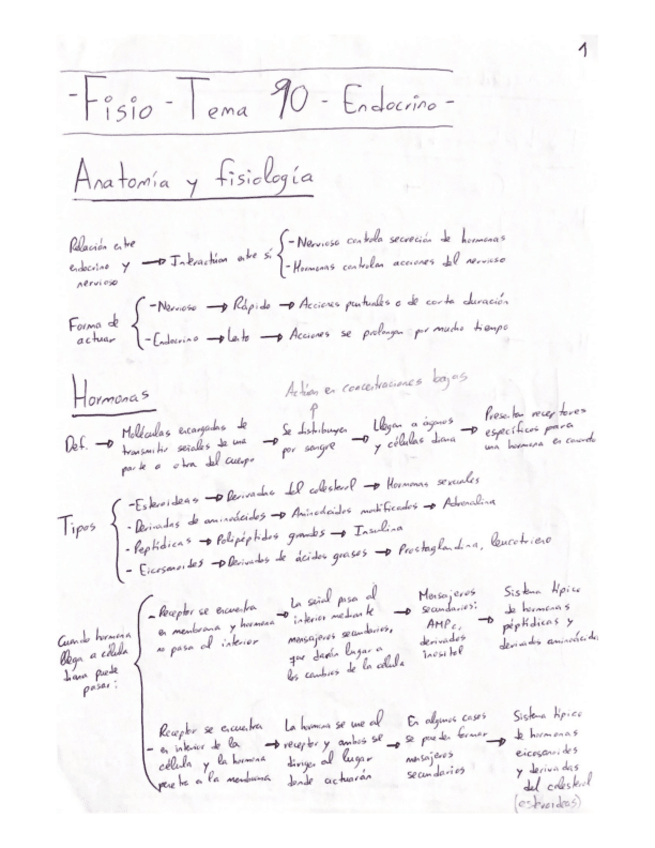 1
-Fisio - Tema 90 - Endocrino-
Anatomía y fisiología
Relación entre
endocrino y → Interactúan entre sí
nervioso
-Nervioso controla secreción de hormonas
-Hormonas controlan acciones del nervioso
Forma de
actuar
-Nervioso → Rápido → Acciones puntuales o de corta duración
-Endocrino → Lento → Acciones se prolongan por mucho tiempo
Hormonas
Actúan en concentraciones bajas
↑
Def. → Moléculas encargadas de
transmitir señales de una
parte a otra del cuerpo
→ Se distribuyen
por sangre
→ Llegan a órganos
y células diana
→ Presentan receptores
específicos para
una hormona en concreto
Tipos
-Esteroideas → Derivadas del colesterol → Hormonas sexuales
-Derivadas de aminoácidos → Aminoácidos modificados → Adrenalina
-Peptídicas → Polipéptidos grandes → Insulina
-Eicosanoides → Derivados de ácidos grasos → Prostaglandina, leucotrieno
Cuando hormona
llega a célula
diana puede
pasar:
- Receptor se encuentra
en membrana y hormona
no pasa al interior
→ La señal pasa al
interior mediante
mensajeros secundarios,
que darán lugar a
los cambios de la célula
→ Mensajeros
secundarios:
AMPc,
derivados
inositol
→ Sistema típico
de hormonas
péptídicas y
derivados aminoácidos
- Receptor se encuentra
en interior de la
célula y la hormona
penetra a la membrana
→ La hormona se une al
receptor y ambos se
dirigen al lugar
donde actuarán
→ En algunos casos
se puede formar
mensajeros
secundarios
→ Sistema típico
de hormonas
eicosanoides
y derivadas
del colesterol
(esteroideas)